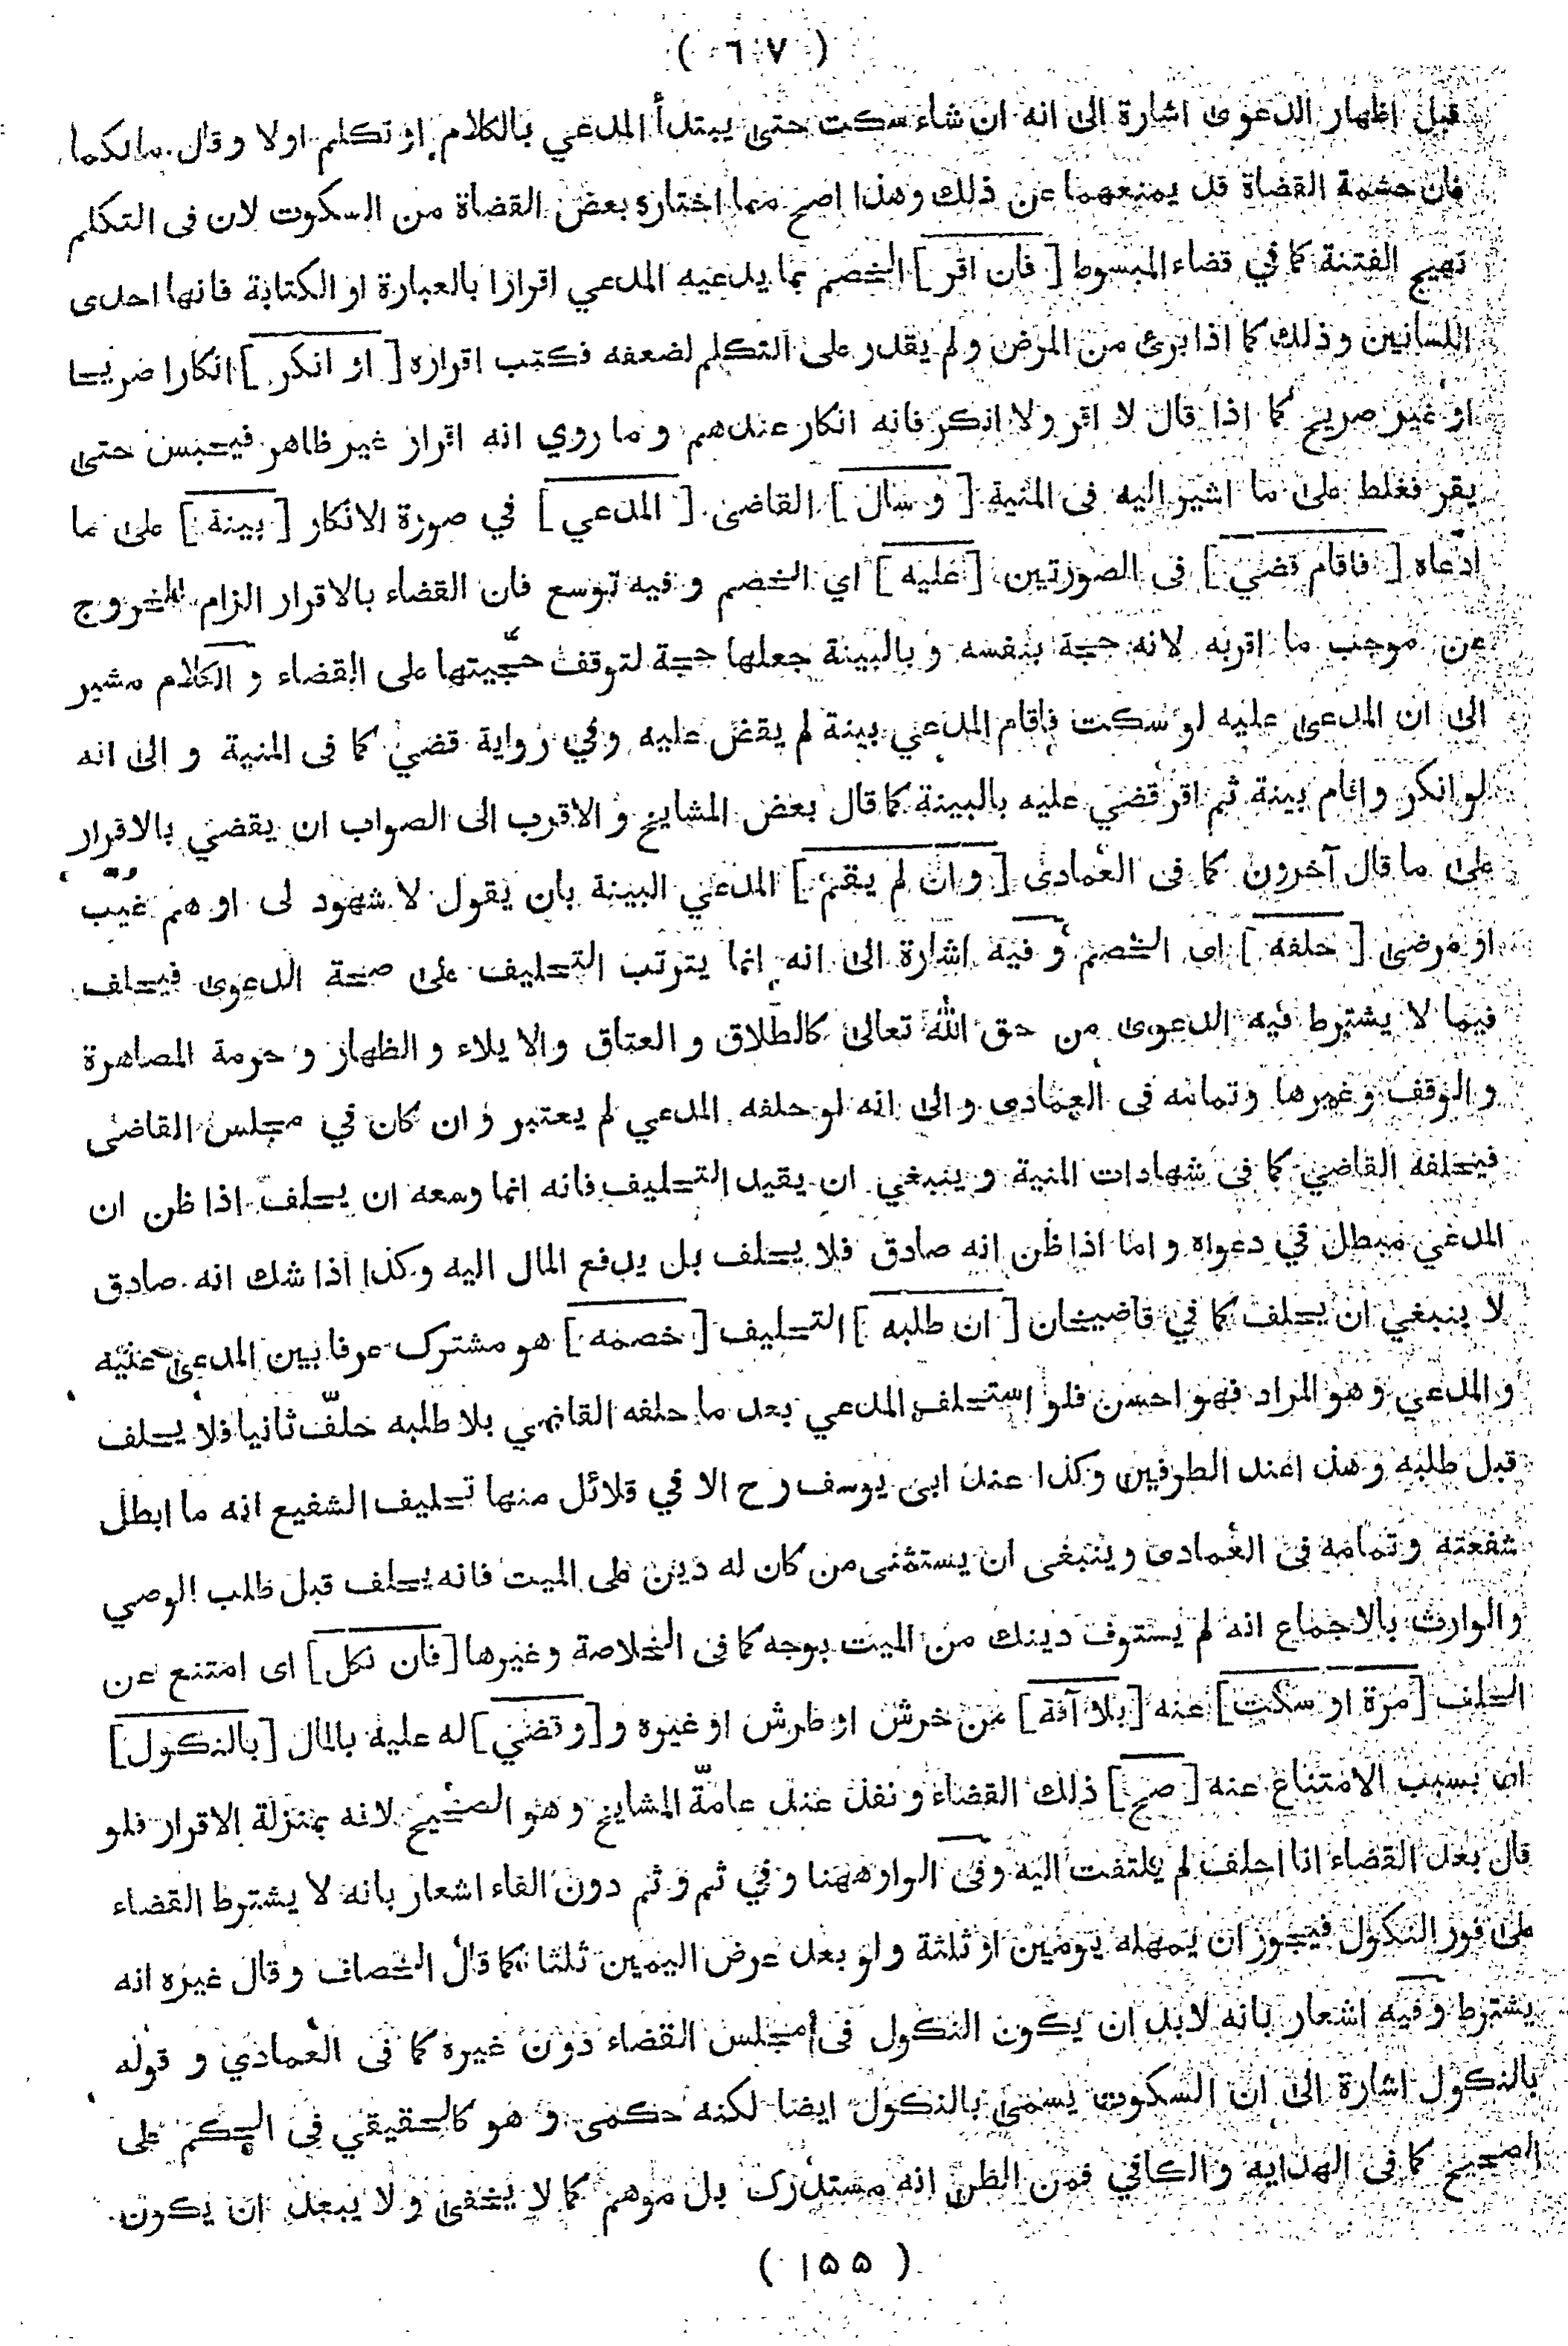 ( ٦٠٧ )
قبل اظهار الدعوى اشارة الى انه ان شاء سكت حتى يبتدأ المدعي بالكلام او تكلم اولا وقال مالكما
فان حشمة القضاة قد يمنعهما عن ذلك وهذا اصح مما اختاره بعض القضاة من السكوت لان فى التكلم
تهيج الفتنة كما في قضاء المبسوط [ فان اقر ] الخصم بما يدعيه المدعي اقرارا بالعبارة او الكتابة فانها احدى
اللسانين وذلك كما اذا برئ من المرض ولم يقدر على التكلم لضعفه فكتب اقراره [ او انكر ] انكارا صريحا
او غير صريح كما اذا قال لا اقر ولا انكر فانه انكار عندهم و ما روي انه اقرار غير ظاهر فيحبس حتى
يقر فغلط على ما اشير اليه فى المنية [ و سأل ] القاضى [ المدعي ] في صورة الانكار [ بينة ] على ما
ادّعاه [ فاقام قضي ] فى الصورتين [ عليه ] اي الخصم و فيه توسع فان القضاء بالاقرار الزام للخروج
عن موجب ما اقربه لانه حجة بنفسه و بالبينة جعلها حجة لتوقف حجّيتها على القضاء و الكلام مشير
الى ان المدعى عليه لو سكت فاقام المدعي بينة لم يقض عليه وفي رواية قضي كما فى المنية و الى انه
لو انكر و اقام بينة ثم اقر قضي عليه بالبينة كما قال بعض المشايخ و الاقرب الى الصواب ان يقضي بالاقرار
على ما قال آخرون كما فى العمادى [ و ان لم يقم ] المدعي البينة بان يقول لا شهود لى او هم غيّب
او مرضى [ حلفه ] اى الخصم و فيه اشارة الى انه انما يترتب التحليف على صحة الدعوى فيحلف
فيما لا يشترط فيه الدعوى من حق الله تعالى كالطلاق و العتاق والايلاء و الظهار و حرمة المصاهرة
و الوقف و غيرها و تمامه فى العمادى و الى انه لو حلفه المدعي لم يعتبر و ان كان في مجلس القاضى
فيحلفه القاضي كما فى شهادات المنية و ينبغي ان يقيد التحليف فانه انما وسعه ان يحلف اذا ظن ان
المدعي مبطل في دعواه و اما اذا ظن انه صادق فلا يحلف بل يدفع المال اليه و كذا اذا شك انه صادق
لا ينبغي ان يحلف كما في قاضيخان [ ان طلبه ] التحليف [ خصمه ] هو مشترك عرفا بين المدعى عليه
و المدعي و هو المراد فهو احسن فلو استحلف المدعي بعد ما حلفه القاضي بلا طلبه حلّف ثانيا فلا يحلف
قبل طلبه و هذا عند الطرفين وكذا عند ابى يوسف رح الا في قلائل منها تحليف الشفيع انه ما ابطل
شفعته و تمامه فى العمادى وينبغى ان يستثنى من كان له دين على الميت فانه يحلف قبل طلب الوصي
و الوارث بالاجماع انه لم يستوف دينك من الميت بوجه كما فى الخلاصة وغيرها [ فان نكل ] اى امتنع عن
الحلف [ مرة او سكت ] عنه [ بلا آفة ] من خرس او طرش او غيره و [ و قضي ] له عليه بالمال [ بالنكول ]
اى بسبب الامتناع عنه [ صح ] ذلك القضاء و نفذ عند عامّة المشايخ و هو الصحيح لانه بمنزلة الاقرار فلو
قال بعد القضاء انا احلف لم يلتفت اليه وفى الواو ههنا و في ثم و ثم دون الفاء اشعار بانه لا يشترط القضاء
على فور النكول فيجوز ان يمهله يومين او ثلثة و لو بعد عرض اليمين ثلثا كما قال الخصاف و قال غيره انه
يشترط وفيه اشعار بانه لابد ان يكون النكول فى مجلس القضاء دون غيره كما فى العمادي و قوله
بالنكول اشارة الى ان السكوت يسمى بالنكول ايضا لكنه حكمى و هو كالحقيقي فى الحكم على
الصحيح كما فى الهدايه و الكافي فمن الظن انه مستدرك بل موهم كما لا يخفى و لا يبعد ان يكون
( ١٥٥ )